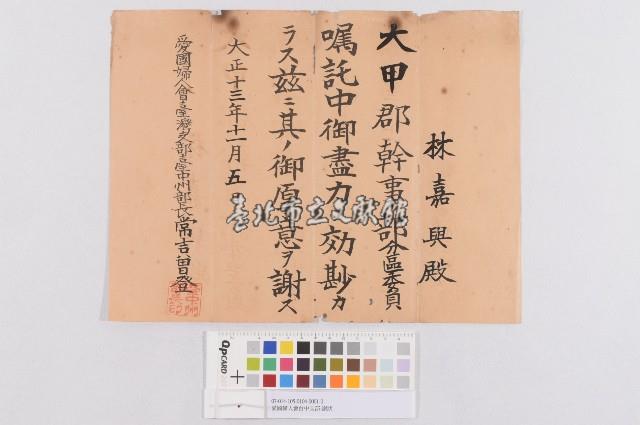 林嘉興殿
大甲郡幹事部分區委員
囑託中御盡力効尠カ
ラス茲ニ其ノ御厚意ヲ謝ス
大正十三年十一月五日
愛國婦人會臺灣支部臺中州部長常吉德登
臺北市立文獻館
QPCARD